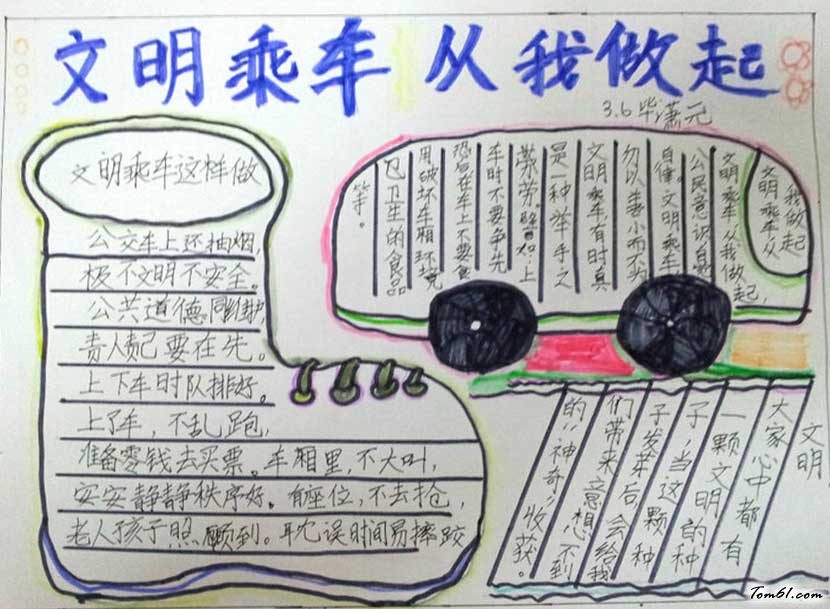 文明乘车 从我做起
3.6 毕潇元
文明乘车这样做
公交车上还抽烟,
极不文明不安全。
公共道德同维护
责人责己要在先。
上下车时队排好。
上了车,不乱跑,
准备零钱去买票。车厢里,不大叫,
安安静静秩序好。有座位,不去抢,
老人孩子照顾到。耽误时间易摔跤
文明乘车从
我做起
文明乘车从我做起,
公民意识自觉
自律。文明乘车
勿以善小而不为
文明乘车,有时真
是一种举手之
劳。譬如:上
车时不要争先
恐后在车上不要食
用破坏车厢环境
卫生的食品
等。
文明
大家心中都有
一颗文明的种
子,当这颗种
子发芽后,会给我
们带来意想不到
的“神奇”收获。
Tom61.com